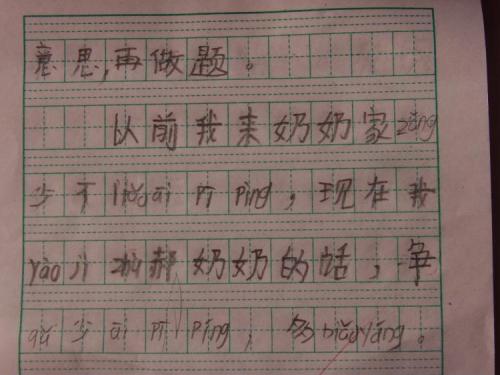 意思,再做题。
以前我来奶奶家zǒng
少不liǎo ái pī píng,现在我
yào jì 郝奶奶的话,争
qǔ 少 ái pī píng,多biǎo yáng。